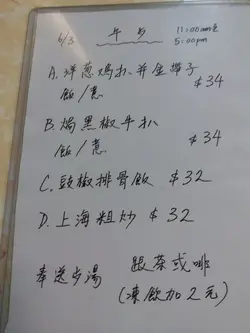 6/3 午市 11:00am至
5:00pm
A. 洋葱鸡扒并金带子
飯/意 $34
B. 焗黑椒牛扒
飯/意 $34
C. 豉椒排骨飯 $32
D. 上海粗炒 $32
奉送步湯 跟茶或啡
(凍飲加2元)